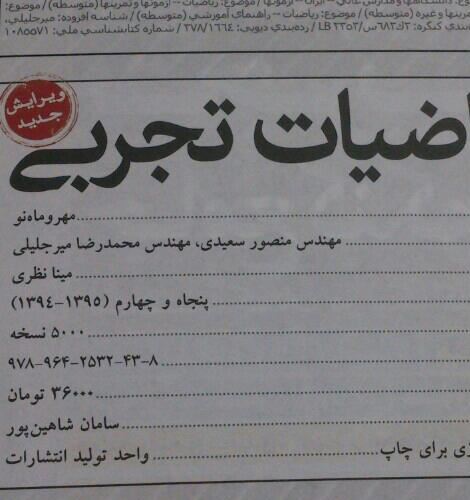 دانشگاهها و مدارس عالی -- ایران -- آزمونها / موضوع: ریاضیات -- آزمونها و تمرینها (متوسطه) / موضوع:
وغیره (متوسطه) / موضوع: ریاضیات -- راهنمای آموزشی (متوسطه) / شناسه افزوده: میرجلیلی،
بندی کنگره: / رده‌بندی دیویی: ۳۷۸/۱۶۶۴ / شماره کتابشناسی ملی: ۱۰۸۵۵۷۱
ویرایش
جدید
اضیات تجربی
مهروماه‌نو
مهندس منصور سعیدی، مهندس محمدرضا میرجلیلی
مینا نظری
پنجاه و چهارم (۱۳۹۵-۱۳۹۴)
۵۰۰۰ نسخه
۹۷۸-۹۶۴-۲۵۳۲-۴۳-۸
۳۶۰۰۰ تومان
سامان شاهین‌پور
زی برای چاپ واحد تولید انتشارات